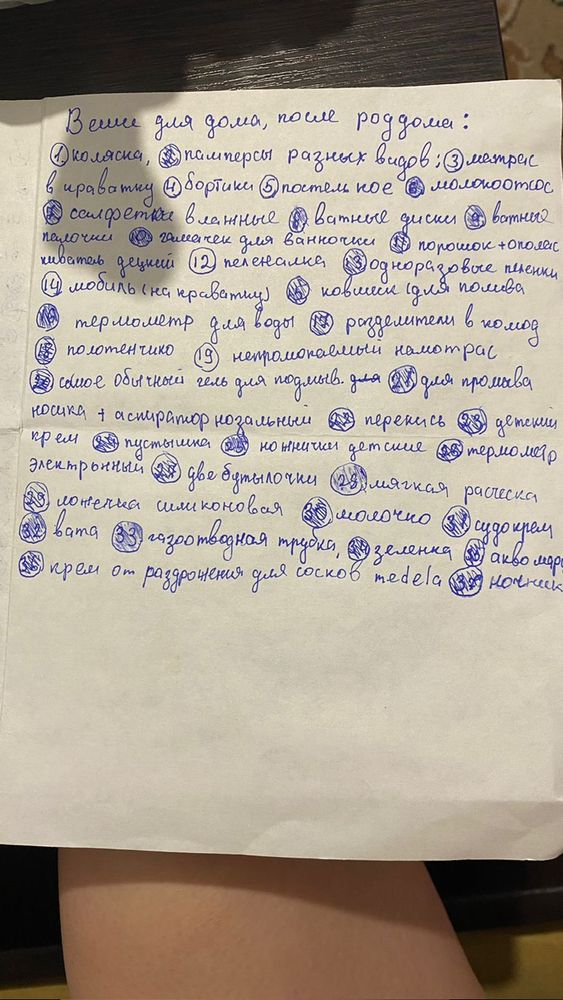 Вещи для дома, после роддома:
1. коляска, 2 памперсы разных видов; 3 матрас
в краватку 4 бортики 5 постельное 6 молокоотсос
7 салфетки влажные 8 ватные диски 9 ватные
палочки 10 гамачек для ванночки 11 порошок + ополас
киватель децкий 12 пеленалка 13 одноразовые пеленки
14 мобиль (на краватку) 15 ковшик (для полива
16 термометр для воды 17 разделители в комод
18 полотенчико 19 непромокаемый наматрас
20 самое обычный гель для подмыв. для 21 для промыва
носика + аспиратор нозальный 22 перекись 23 детский
крем 24 пустышка 25 ножнички детские 26 термометр
электронный 27 две бутылочки 28 мягкая расческа
29 ложечка силиконовая 30 молочко 31 судокрем
32 вата 33 газоотводная трубка, 34 зеленка 35 аквамар
36 крем от раздрожения для сосков medela 37 ночник